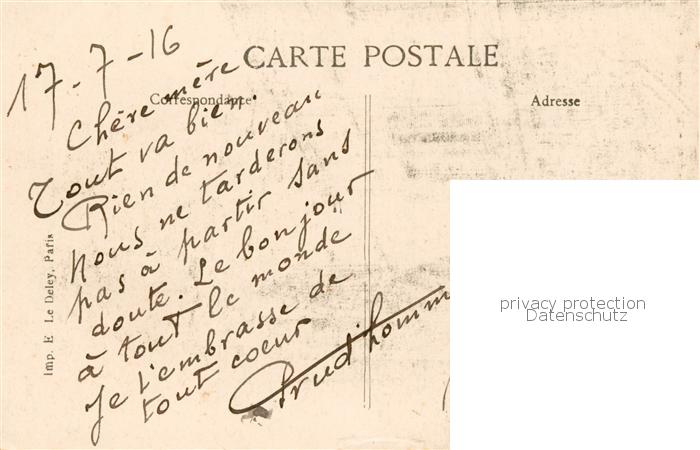 17-7-16
CARTE POSTALE
Correspondance
Adresse
Chère mère
Tout va bien.
Rien de nouveau
nous ne tarderons
pas à partir sans
doute. Le bonjour
à tout le monde
Je t'embrasse de
tout coeur
Prud'homm
Imp. E Le Deley, Paris
privacy protection
Datenschutz